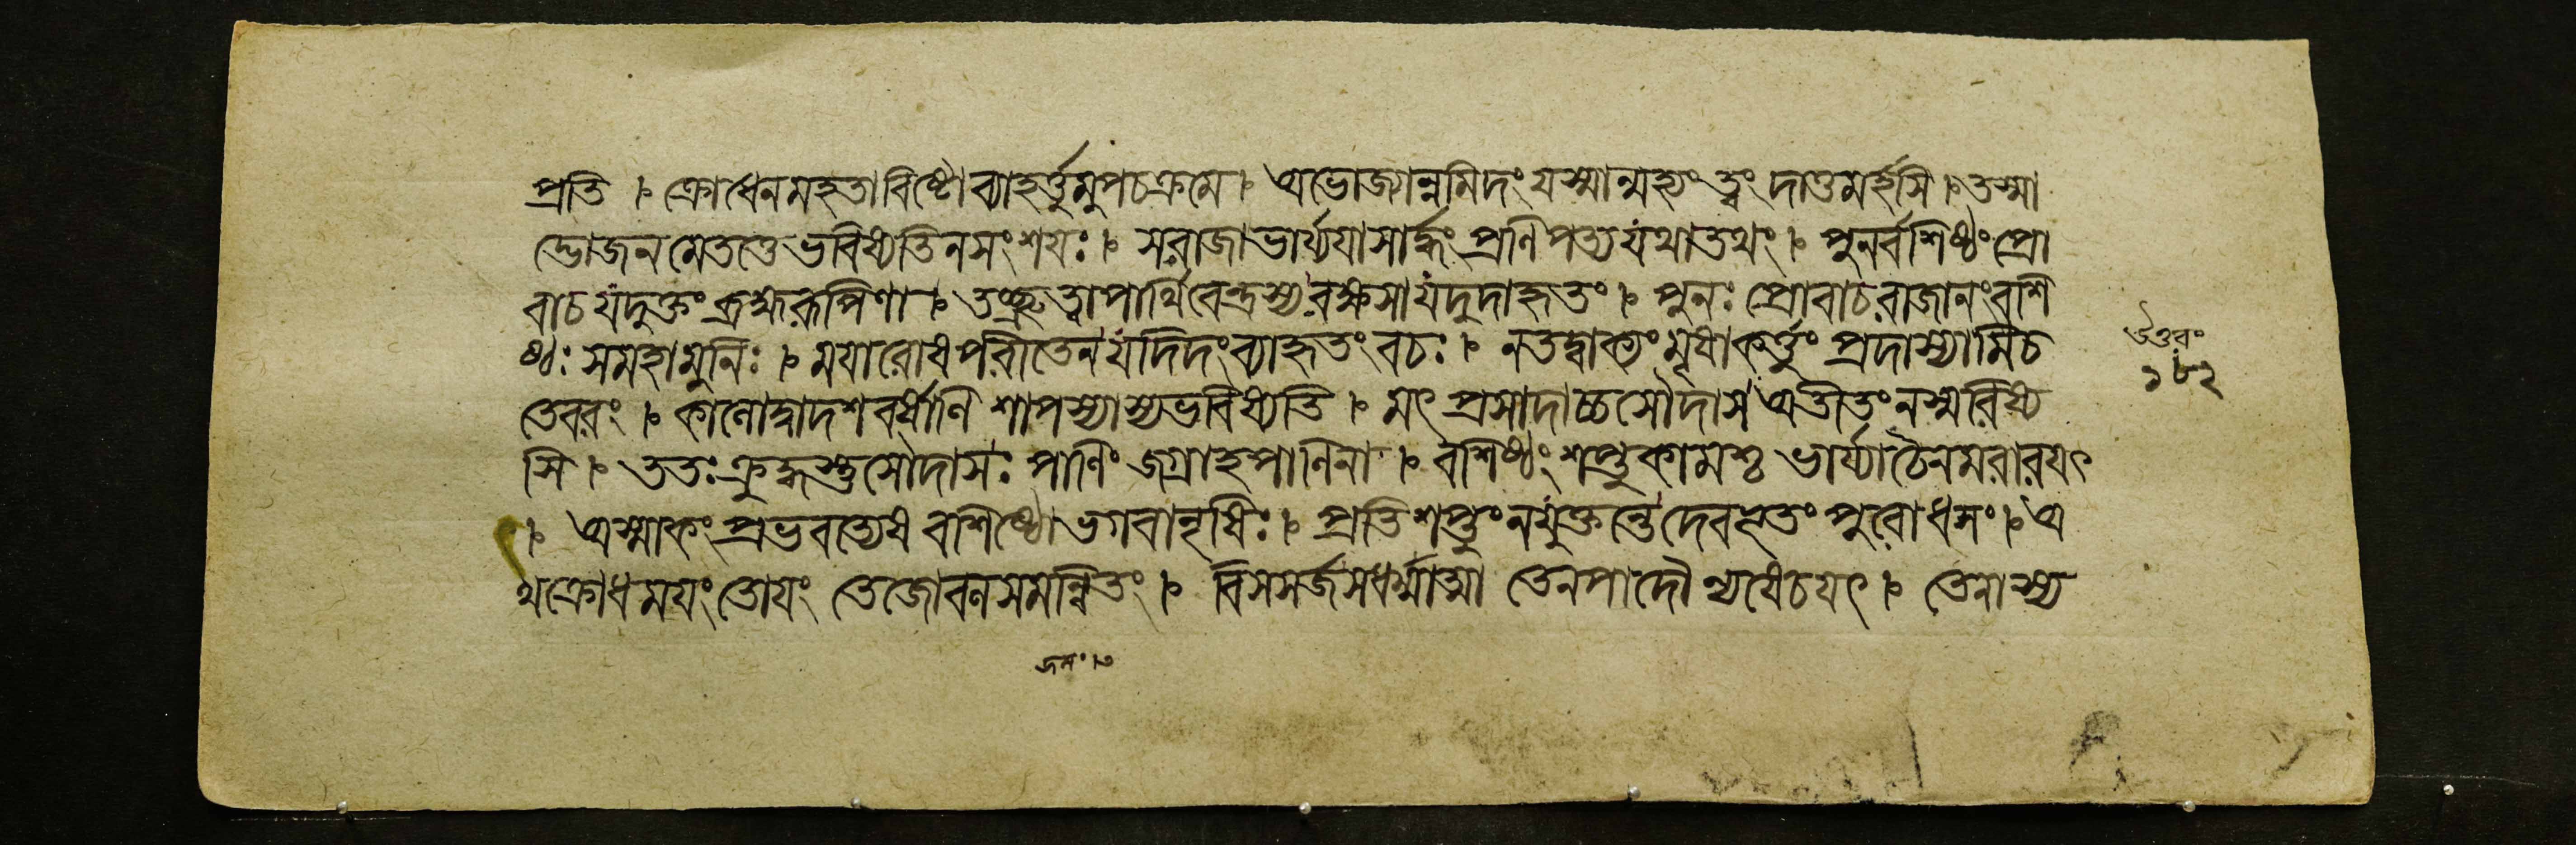 প্রতি । ক্রোধেনমহতাবিষ্টোব্যাহর্ত্তুমুপচক্রমে । অভোজ্যান্নমিদংযস্মান্মহ্যংত্বংদাতুমর্হসি । তস্মা
দ্ভোজনমেতত্তেভবিষ্যতিনসংশয়ঃ । সরাজাভার্য্যয়াসার্দ্ধংপ্রণিপত্যযথাতথং । পুনর্বশিষ্ঠংপ্রো
বাচযদুক্তংব্রহ্মরূপিণা । তচ্ছ্রুত্বাপার্থিবেন্দ্রস্যরক্ষসাযদুদাহৃতং । পুনঃ প্রোবাচরাজানংবশি
ষ্ঠঃ সমহামুনিঃ । ময়ারোষপরীতেনযদিদংব্যাহৃতংবচঃ । নতদ্বাক্যংমৃষাকর্ত্তুং প্রদাস্যামিচ
তেবরং । কালোদ্বাদশবর্ষাণি শাপস্যাস্যভবিষ্যতি । মৎ প্রসাদাচ্চসৌদাস অতীতংনস্মরিষ্য
সি । ততঃক্রুদ্ধস্তুসৌদাসঃ পাণিং জগ্রাহপাণিনা । বশিষ্ঠংশপ্তুকামশ্চ ভার্য্যাচৈনমবারয়ৎ
। অস্মাকংপ্রভবত্যেষ বশিষ্ঠোভগবানৃষিঃ । প্রতিশপ্তুংনযুক্তন্তেদেবহূতং পুরোধসং । অ
থক্রোধময়ংতোয়ং তেজোবলসমন্বিতং । বিসসর্জসধর্ম্মাত্মা তেনপাদৌন্যষেচয়ৎ । তেনাস্য
উত্তরং
১৮২
জলং । ৩